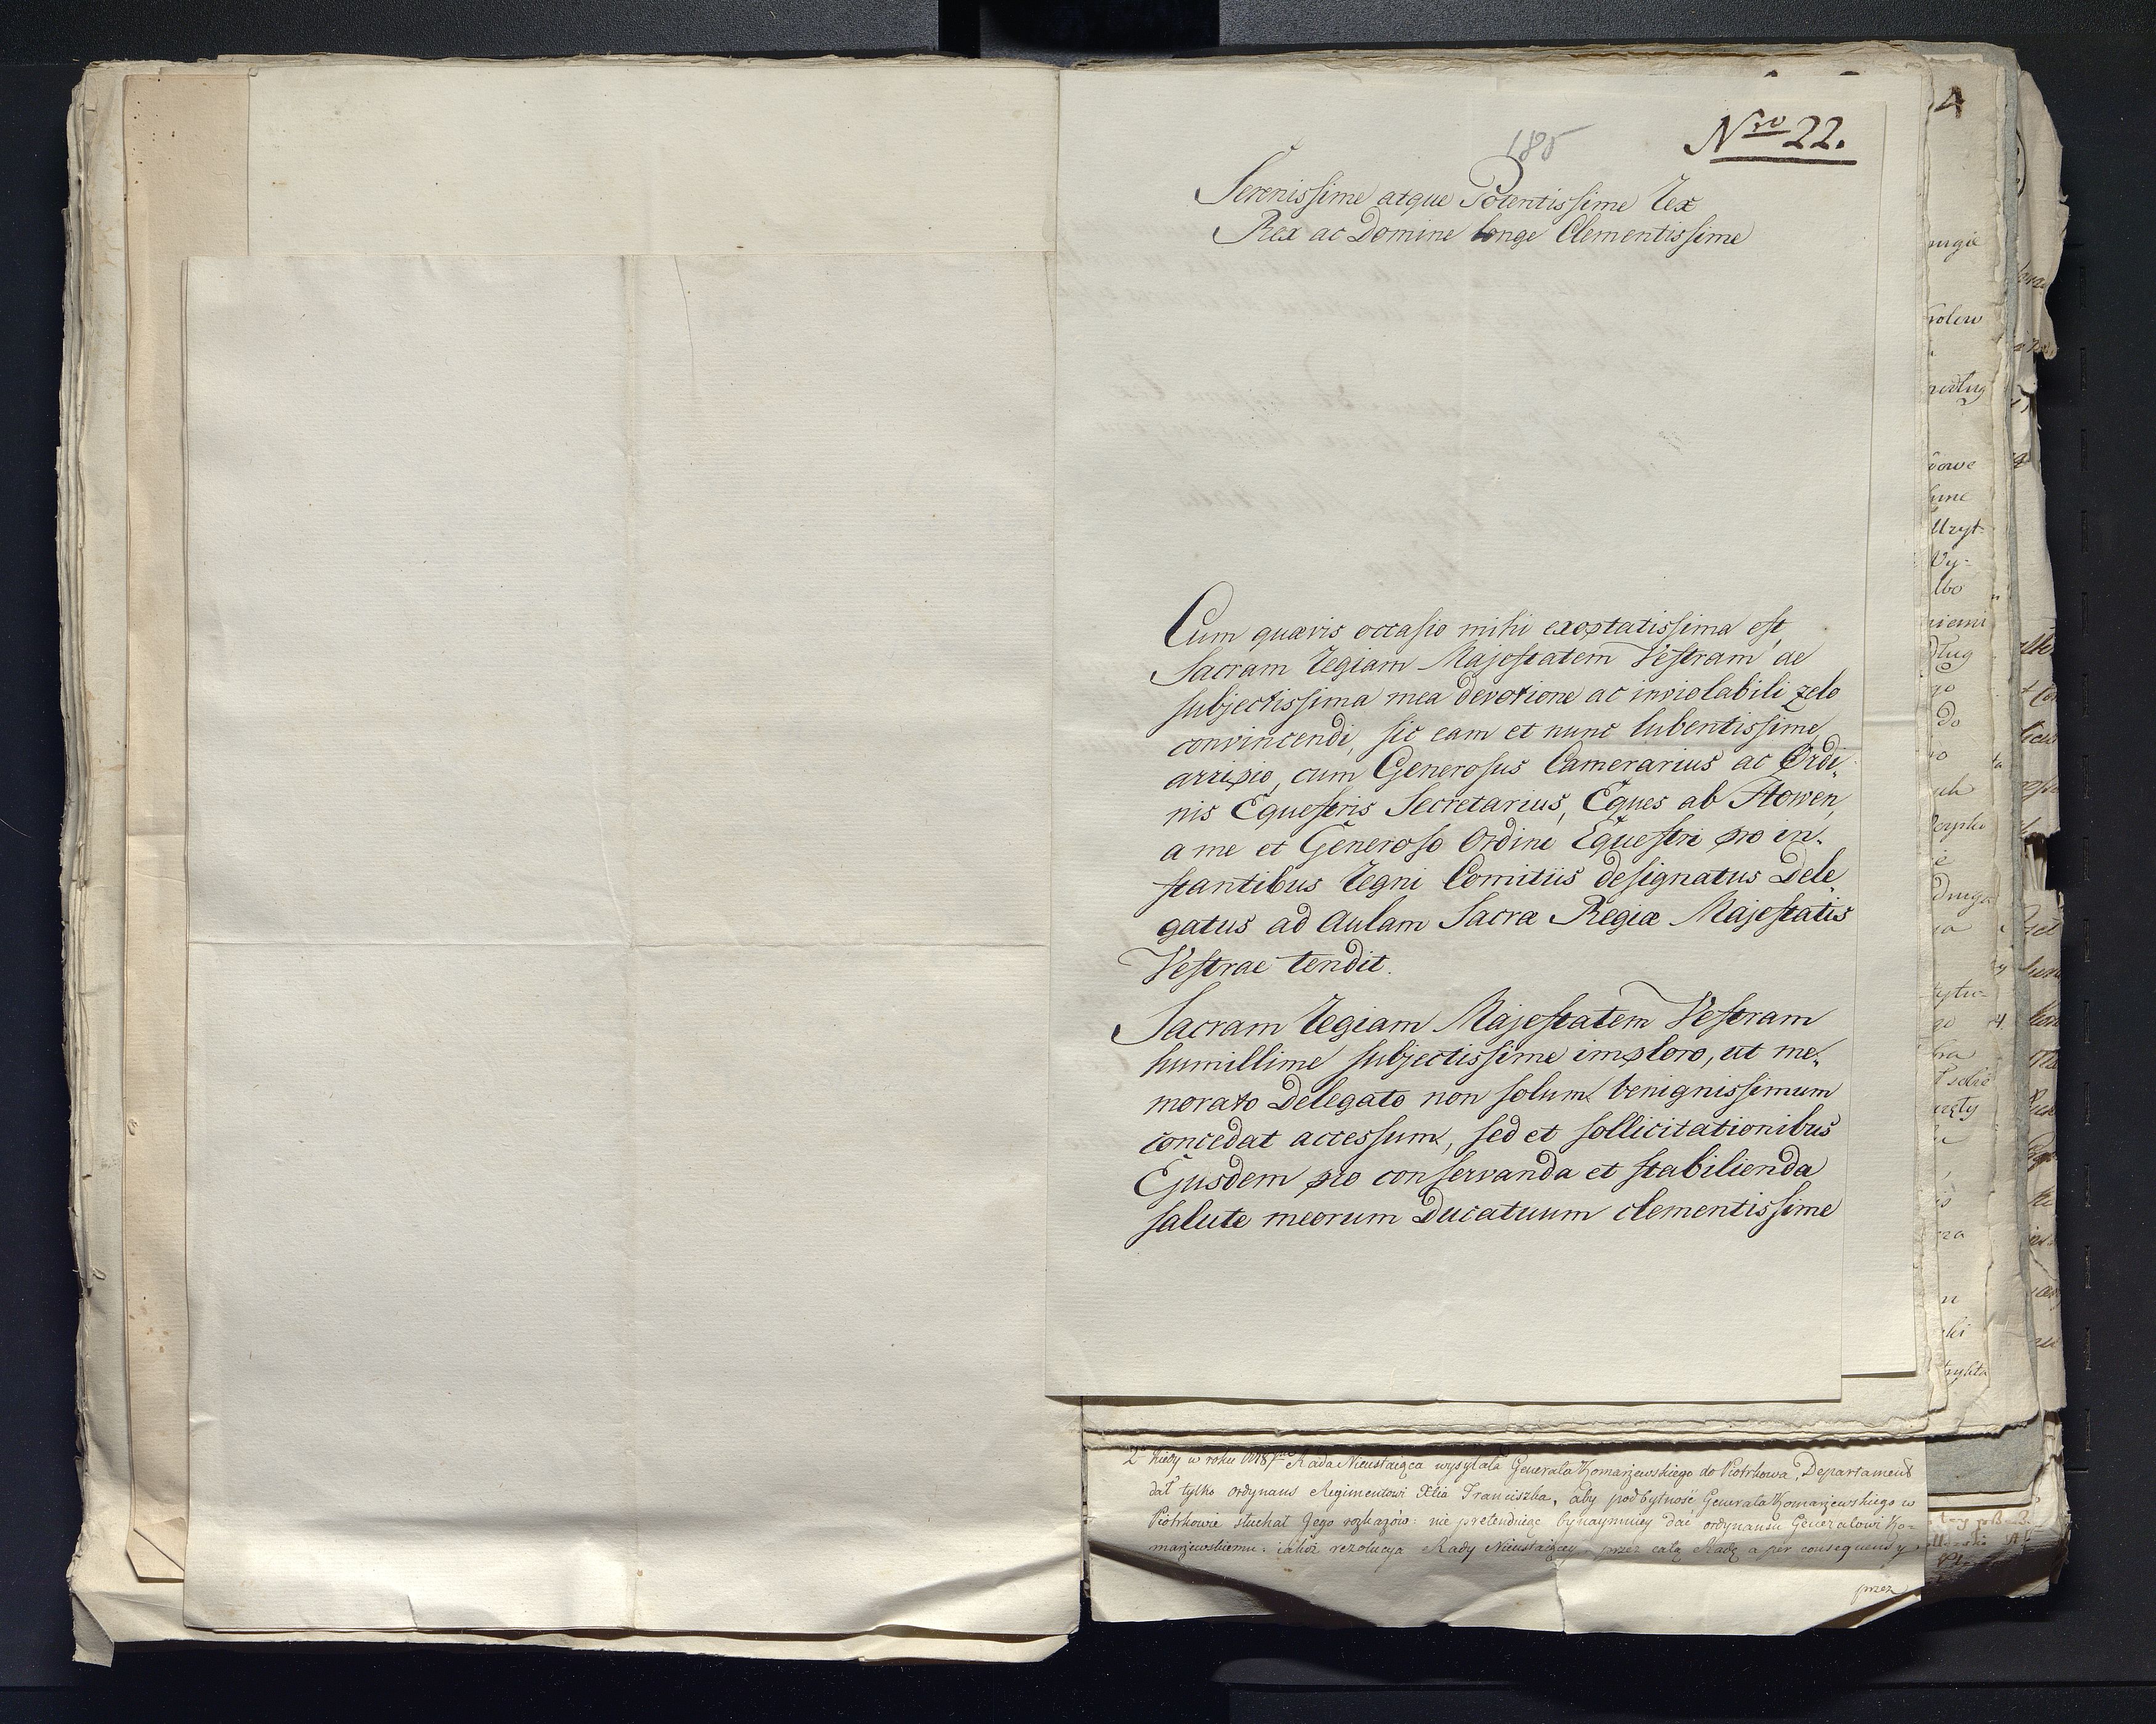 Nro 22.
185
Serenissime atque Potentissime Rex
Rex ac Domine longe Clementissime
Cum quævis occasio mihi exoptatissima est,
Sacram Regiam Majestatem Vestram de
subjectissima mea devotione ac inviolabili zelo
convincendi, sic eam et nunc lubentissime
arripio, cum Generosus Camerarius ac Ordi-
nis Equestris Secretarius, Eques ab Howen,
a me et Generoso Ordine Equestri pro in-
stantibus Regni Comitiis designatus Dele-
gatus ad Aulam Sacræ Regiæ Majestatis
Vestrae tendit.
Sacram Regiam Majestatem Vestram
humillime subjectissime imploro, ut me-
morato Delegato non solum benignissimum
concedat accessum, sed et sollicitationibus
Ejusdem pro conservanda et stabilienda
salute meorum Ducatuum clementissime
Kiedy w roku Rada Nieustaiąca wysyłała Generała Komarzewskiego do Piotrkowa, Departament
dał tylko ordynans Regimentowi Xcia Franciszka, aby pod bytność Generała Komarzewskiego w
Piotrkowie słuchał Jego rozkazów: nie pretenduiąc bynaymniey dać ordynansu Generałowi Ko=
marzewskiemu: iakoż rezolucya Rady Nieustaiącey przez całą Radę a per consequens y
przez